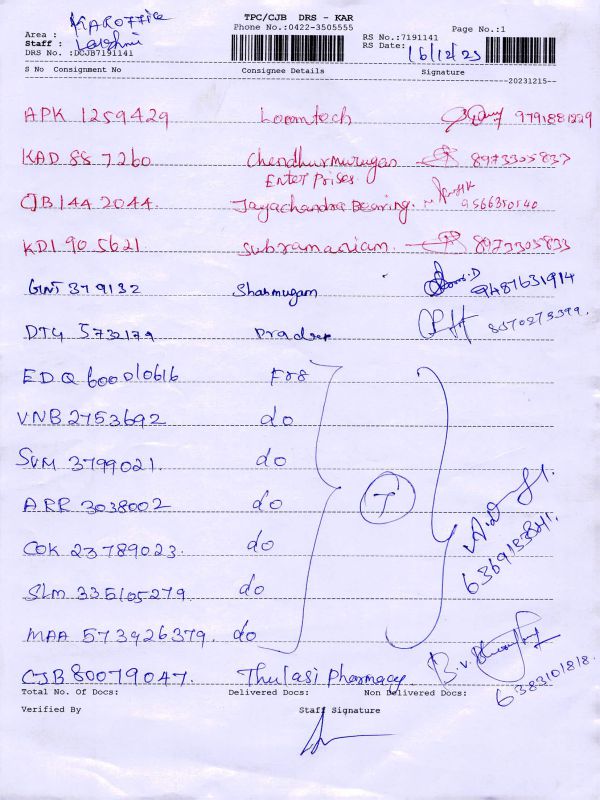 TPC/CJB DRS - KAR
Area : KAR OFFICE Phone No.:0422-3505555 Page No.:1
Staff : Lakshmi RS No.:7191141
DRS No. :DCJB7191141 RS Date: 16/12/23
S No Consignment No Consignee Details Signature
20231215
APK 1259429 Loomtech
KAD 88 7260 Chendhurmurugan 8973305833
Enterprises
CJB 144 2044. Jayachandra Bearing. 9566350140
KDI 90 5621 Subramaniam. 8973305833
379132 Shanmugam 9487631914
DTG 5732179 Pradeep
EDQ 600010616 FRS
VNB 2753692 do
SVM 3799021. do
ARR 3038002 do
COK 23789023. do
SLM 335105279 do
MAA 573926379. do
CJB 80079047. Thulasi Pharmacy. 6383101818.
Total No. Of Docs: Delivered Docs: Non Delivered Docs:
Verified By Staff Signature